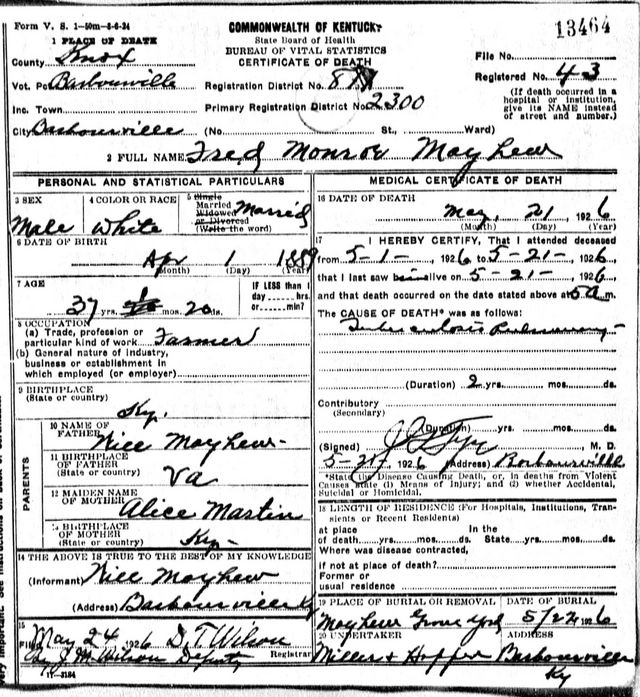 Form V. S. 1-50m-8-6-24
COMMONWEALTH OF KENTUCKY
13464
1 PLACE OF DEATH
State Board of Health
BUREAU OF VITAL STATISTICS
CERTIFICATE OF DEATH
County Knox
File No.
Vot. Pct. Barbourville
Registration District No.
Registered No. 43
Inc. Town
Primary Registration District No. 2300
(If death occurred in a hospital or institution, give its NAME instead of street and number.)
City Barbourville (No. St., Ward)
2 FULL NAME Fred Monroe Mayhew
PERSONAL AND STATISTICAL PARTICULARS
3 SEX Male
4 COLOR OR RACE White
5 Single Married Widowed or Divorced (Write the word) Married
6 DATE OF BIRTH
Apr 1 1889
(Month) (Day) (Year)
7 AGE
37 yrs. mos. 20 ds.
IF LESS than 1 day hrs. or min?
8 OCCUPATION
(a) Trade, profession or particular kind of work Farmer
(b) General nature of industry, business or establishment in which employed (or employer)
9 BIRTHPLACE
(State or country)
Ky.
PARENTS
10 NAME OF FATHER Nice Mayhew
11 BIRTHPLACE OF FATHER (State or country) Va
12 MAIDEN NAME OF MOTHER Alice Martin
13 BIRTHPLACE OF MOTHER (State or country) Ky
14 THE ABOVE IS TRUE TO THE BEST OF MY KNOWLEDGE
(Informant) Nice Mayhew
(Address) Barbourville Ky
15
Filed May 24 1926 D.T. Wilson
Registrar
By J M Wilson Deputy
11-3184
MEDICAL CERTIFICATE OF DEATH
16 DATE OF DEATH
May 21 1926
(Month) (Day) (Year)
17 I HEREBY CERTIFY, That I attended deceased
from 5-1- , 1926 to 5-21- , 1926,
that I last saw alive on 5-21- , 1926
and that death occurred on the date stated above at 5 a m.
The CAUSE OF DEATH* was as follows:
Tuberculosis Pulmonary
(Duration) 2 yrs. mos. ds.
Contributory
(Secondary)
(Duration) yrs. mos. ds.
(Signed) M. D.
1926 (Address) Barbourville
*State the Disease Causing Death, or, in deaths from Violent Causes state (1) Means of Injury; and (2) whether Accidental, Suicidal or Homicidal.
18 LENGTH OF RESIDENCE (For Hospitals, Institutions, Transients or Recent Residents)
at place of death yrs. mos. ds. In the State yrs. mos. ds.
Where was disease contracted,
if not at place of death?
Former or
usual residence
19 PLACE OF BURIAL OR REMOVAL
Mayhew Grave Yard
DATE OF BURIAL
5/22 1926
20 UNDERTAKER
Miller & Hopper
ADDRESS
Barbourville
Ky